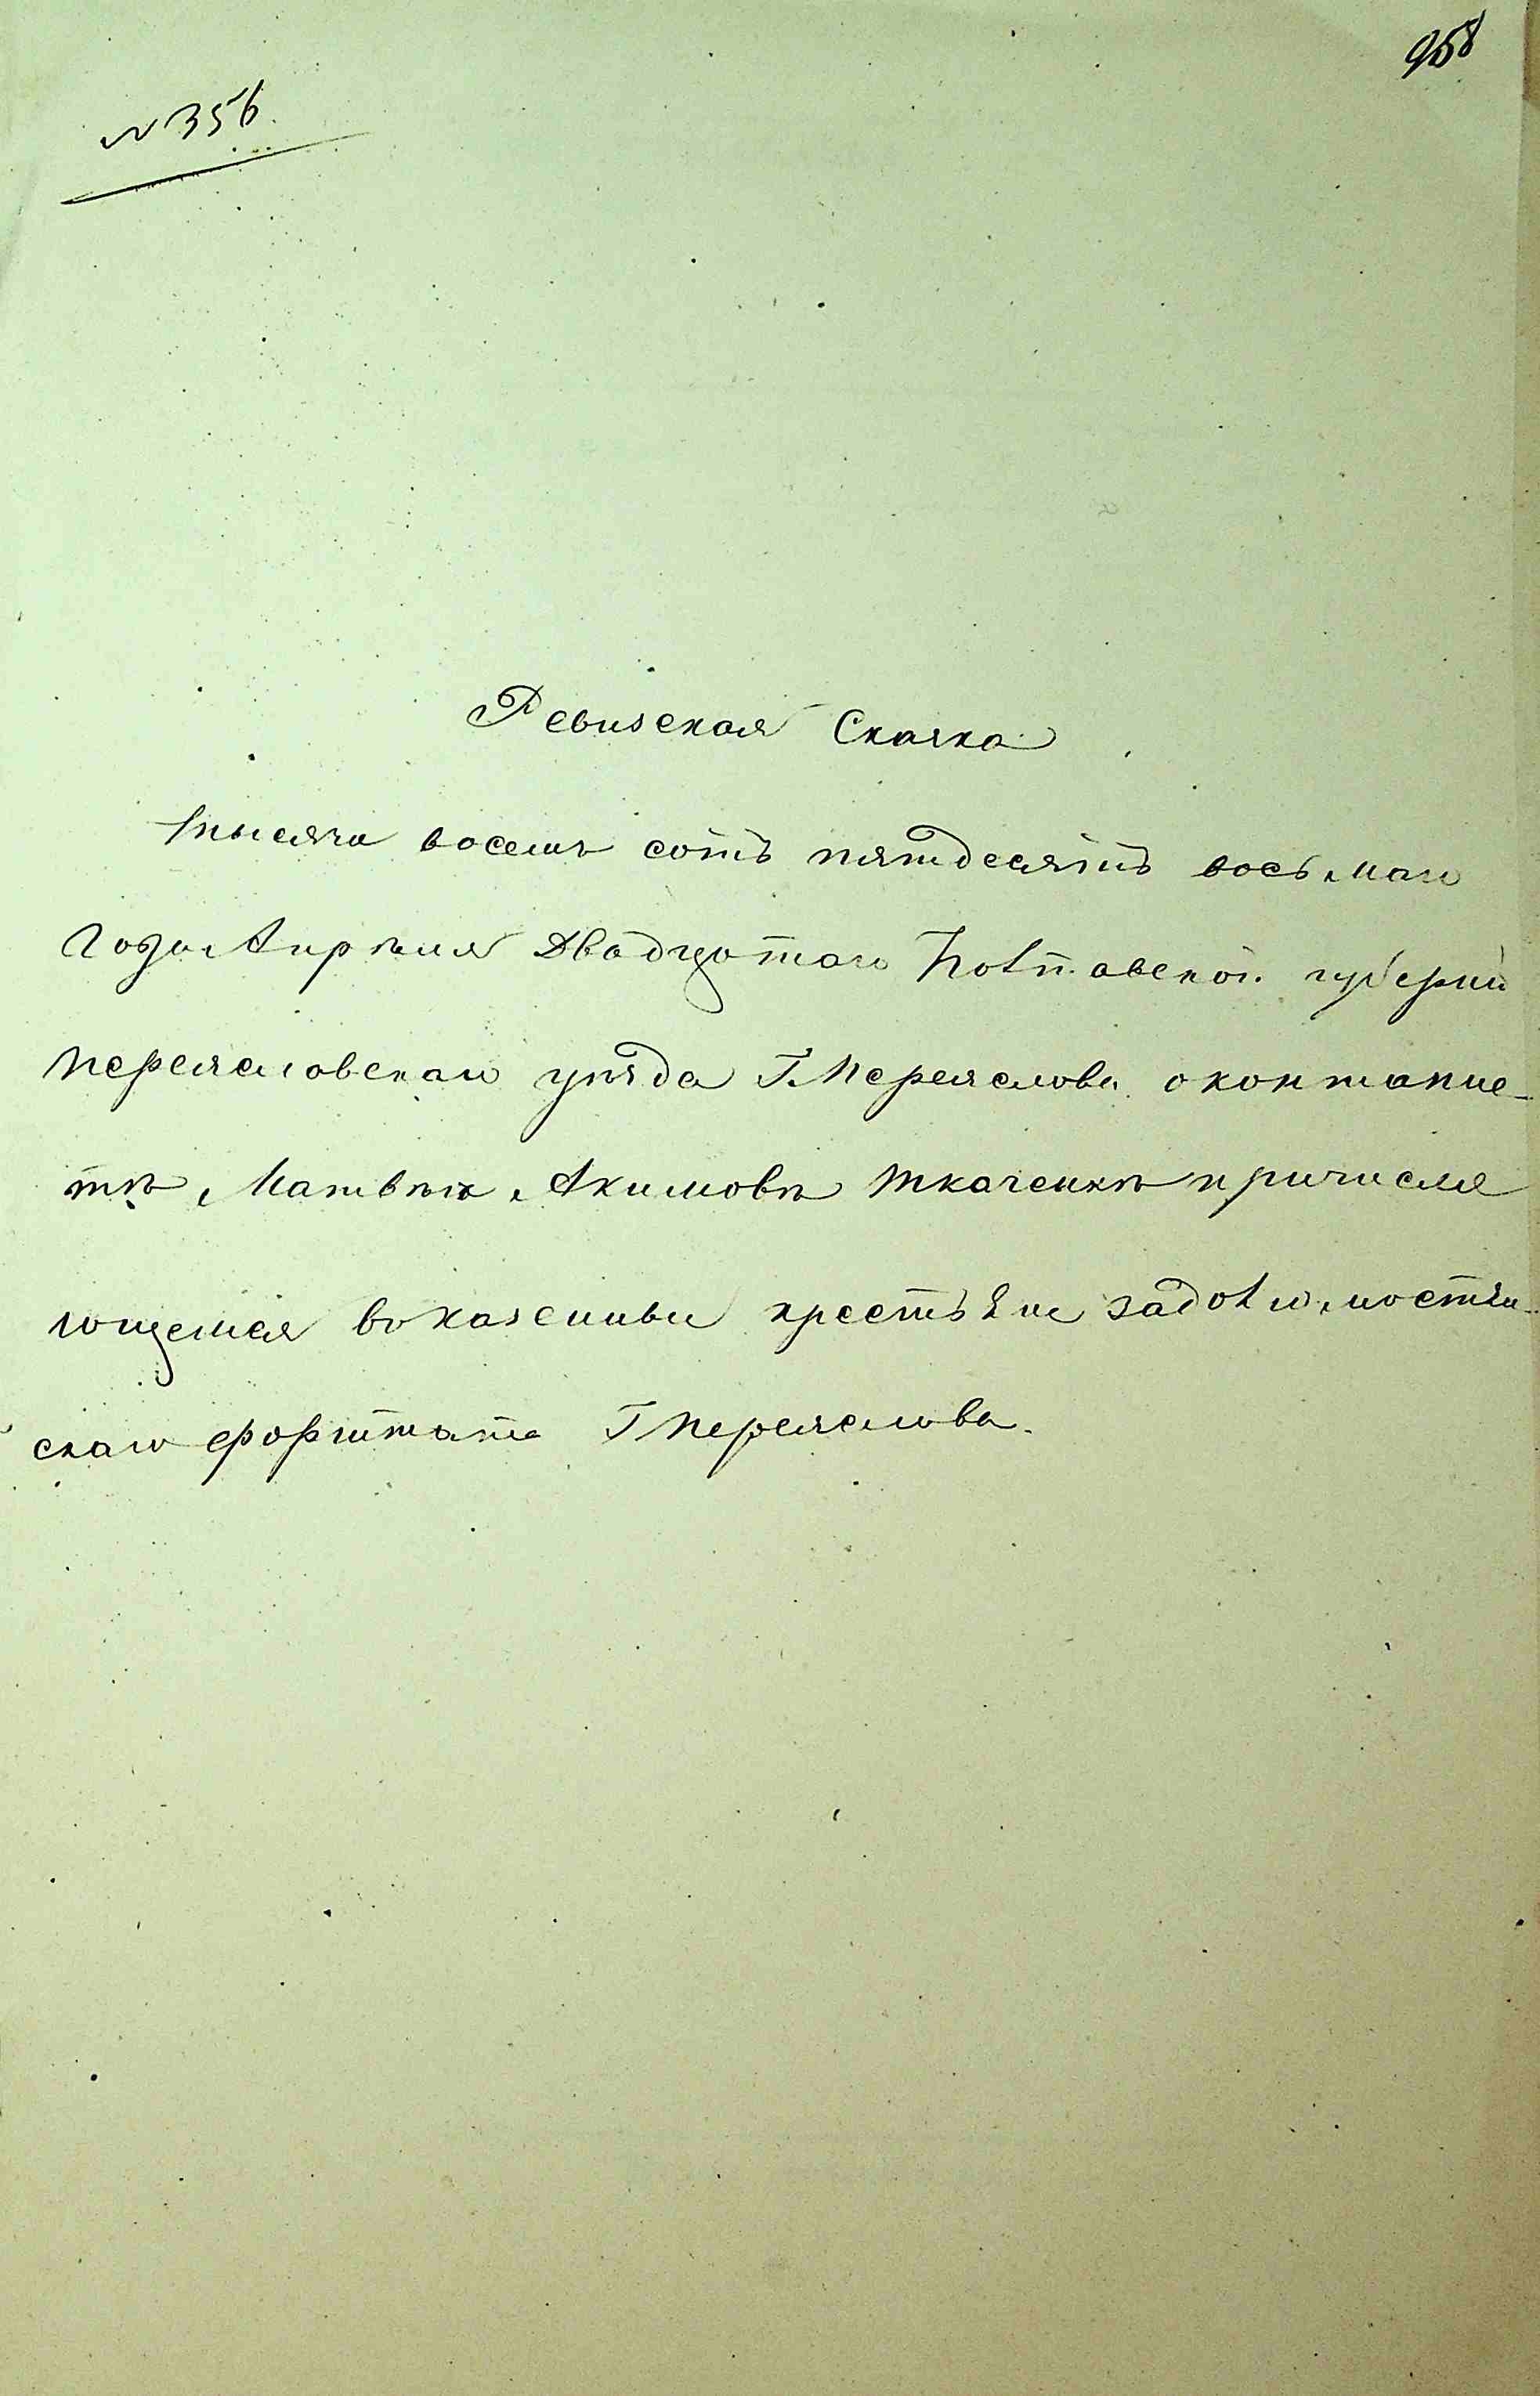 958
№ 356.
Ревизская Сказка
тысяча восемь сотъ пятдесятъ восьмаго
года Апрѣля двадцатаго Полтавской губерніи
переяславскаго уѣзда Г. Переяслова о контанис-
тѣ Матвѣѣ Акимовѣ ткаченкѣ причисля
ющемся воказенныи крестьяне задолюмостян-
скаго форштата Г Переяслова.